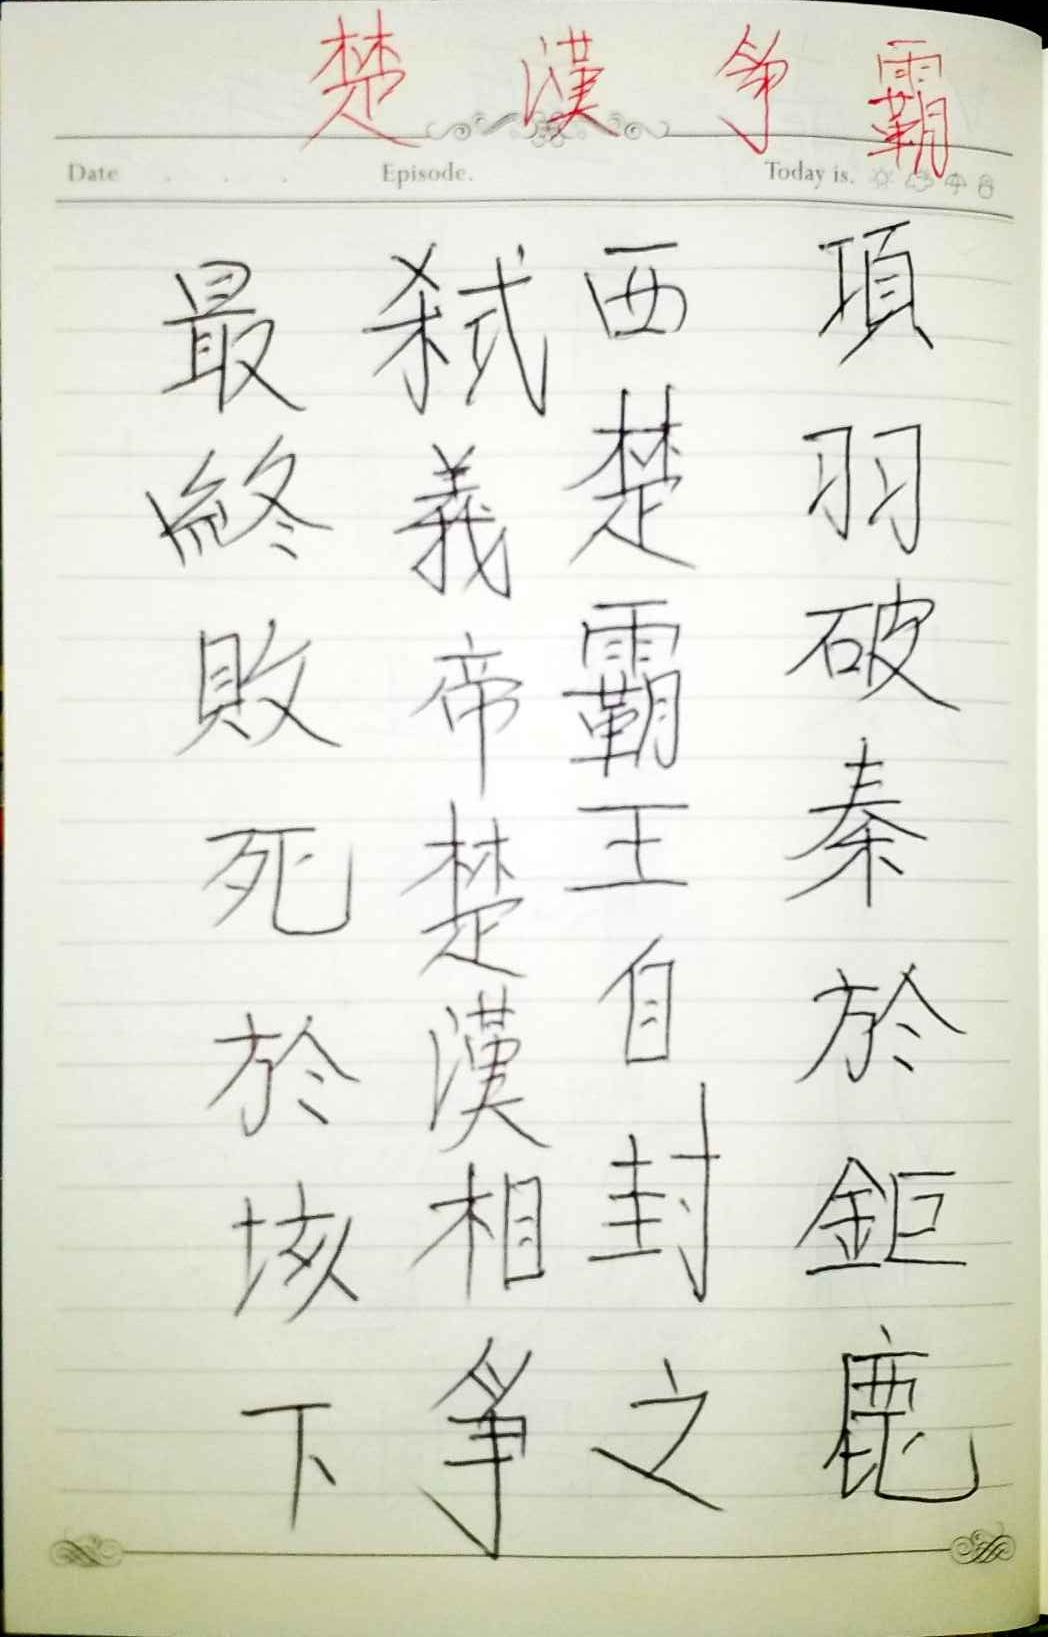 楚漢爭霸
Date . . . Episode. Today is.
項羽破秦於鉅鹿
西楚霸王自封之
弒義帝楚漢相爭
最終敗死於垓下